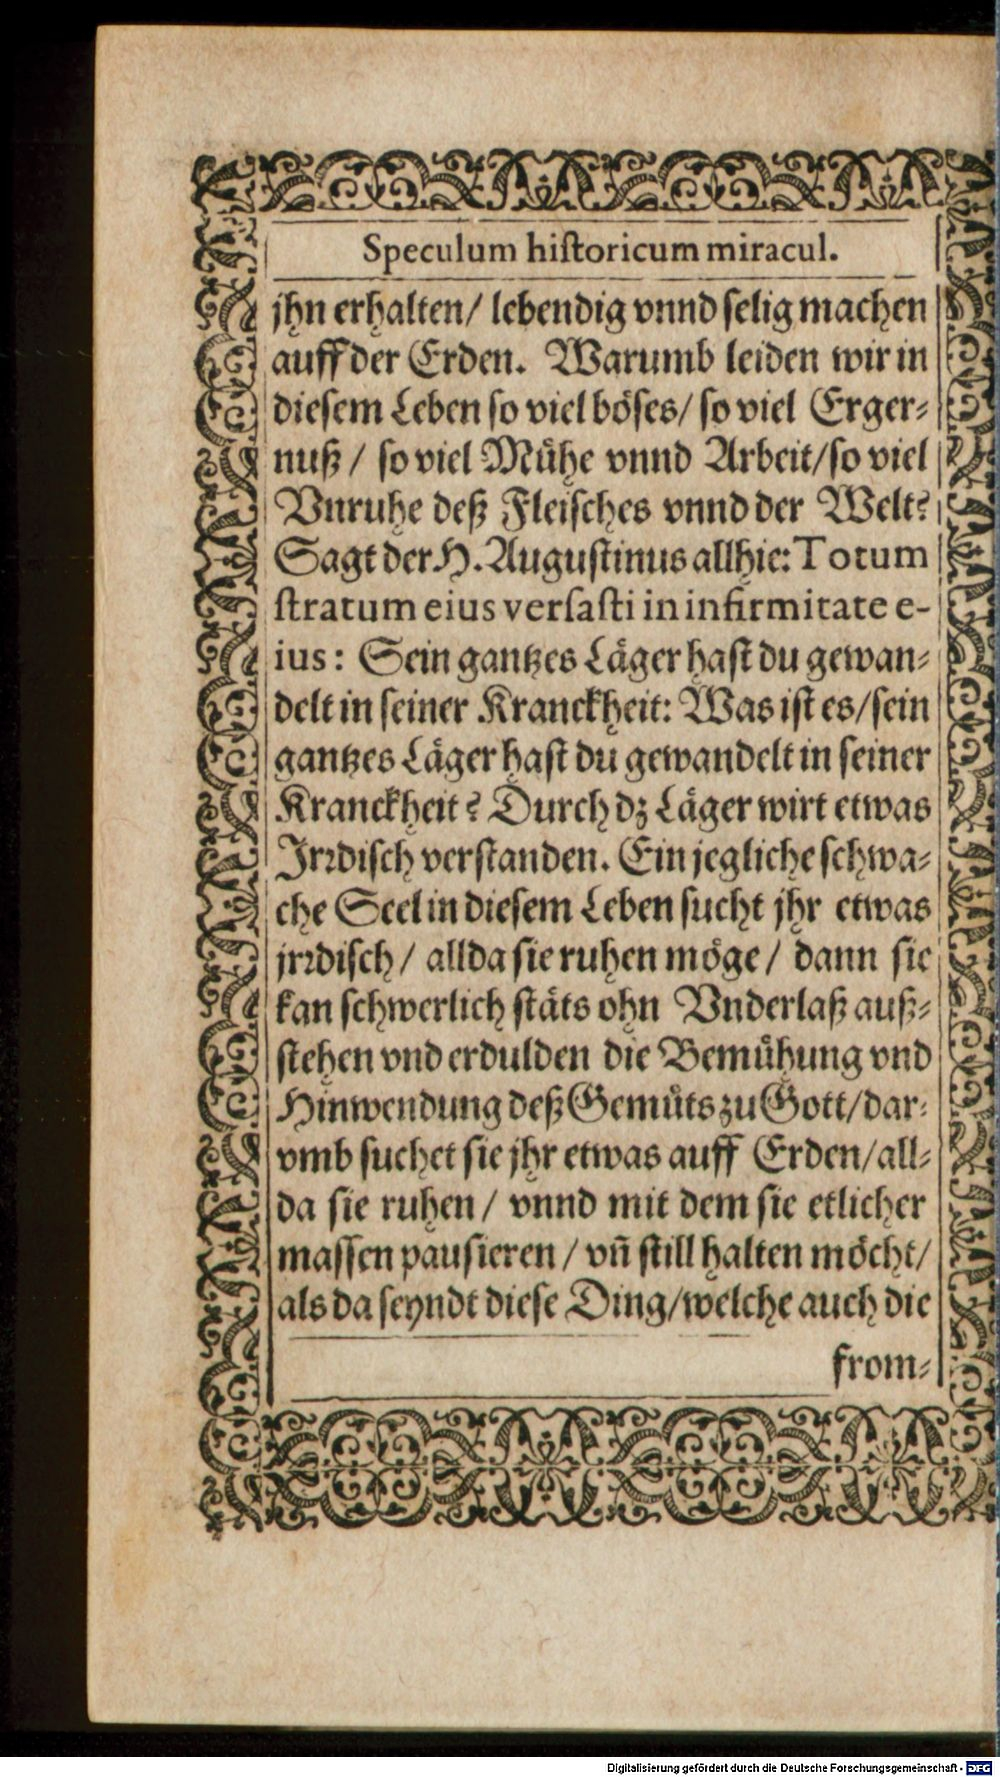 Speculum hiſtoricum miracul.
jhn erhalten/ lebendig vnnd ſelig machen
auff der Erden. Warumb leiden wir in
dieſem Leben ſo viel böſes/ ſo viel Erger⸗
nuß/ ſo viel Mühe vnnd Arbeit/ ſo viel
Vnruhe deß Fleiſches vnnd der Welt?
Sagt der H. Auguſtinus allhie: Totum
ſtratum eius verſaſti in infirmitate e-
ius: Sein gantzes Läger haſt du gewan⸗
delt in ſeiner Kranckheit: Was iſt es/ ſein
gantzes Läger haſt du gewandelt in ſeiner
Kranckheit? Durch dz Läger wirt etwas
Jrꝛdiſch verſtanden. Ein jegliche ſchwa⸗
che Seel in dieſem Leben ſucht jhr etwas
jrꝛdiſch/ allda ſie ruhen möge/ dann ſie
kan ſchwerlich ſtäts ohn Vnderlaß auß⸗
ſtehen vnd erdulden die Bemühung vnd
Hinwendung deß Gemüts zu Gott/ dar⸗
vmb ſuchet ſie jhr etwas auff Erden/ all⸗
da ſie ruhen/ vnnd mit dem ſie etlicher
maſſen pauſieren/ vñ ſtill halten möcht/
als da ſeyndt dieſe Ding/ welche auch die
from⸗
Digitalisierung gefördert durch die Deutsche Forschungsgemeinschaft - DFG